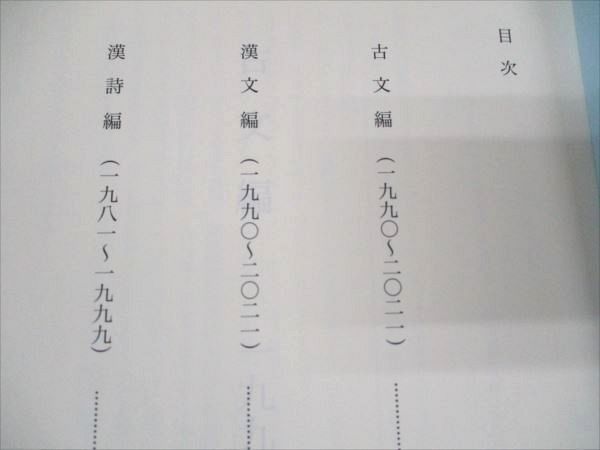 目次
古文編 (一九九〇〜二〇二一)………
漢文編 (一九九〇〜二〇二一)………
漢詩編 (一九八一〜一九九九)………